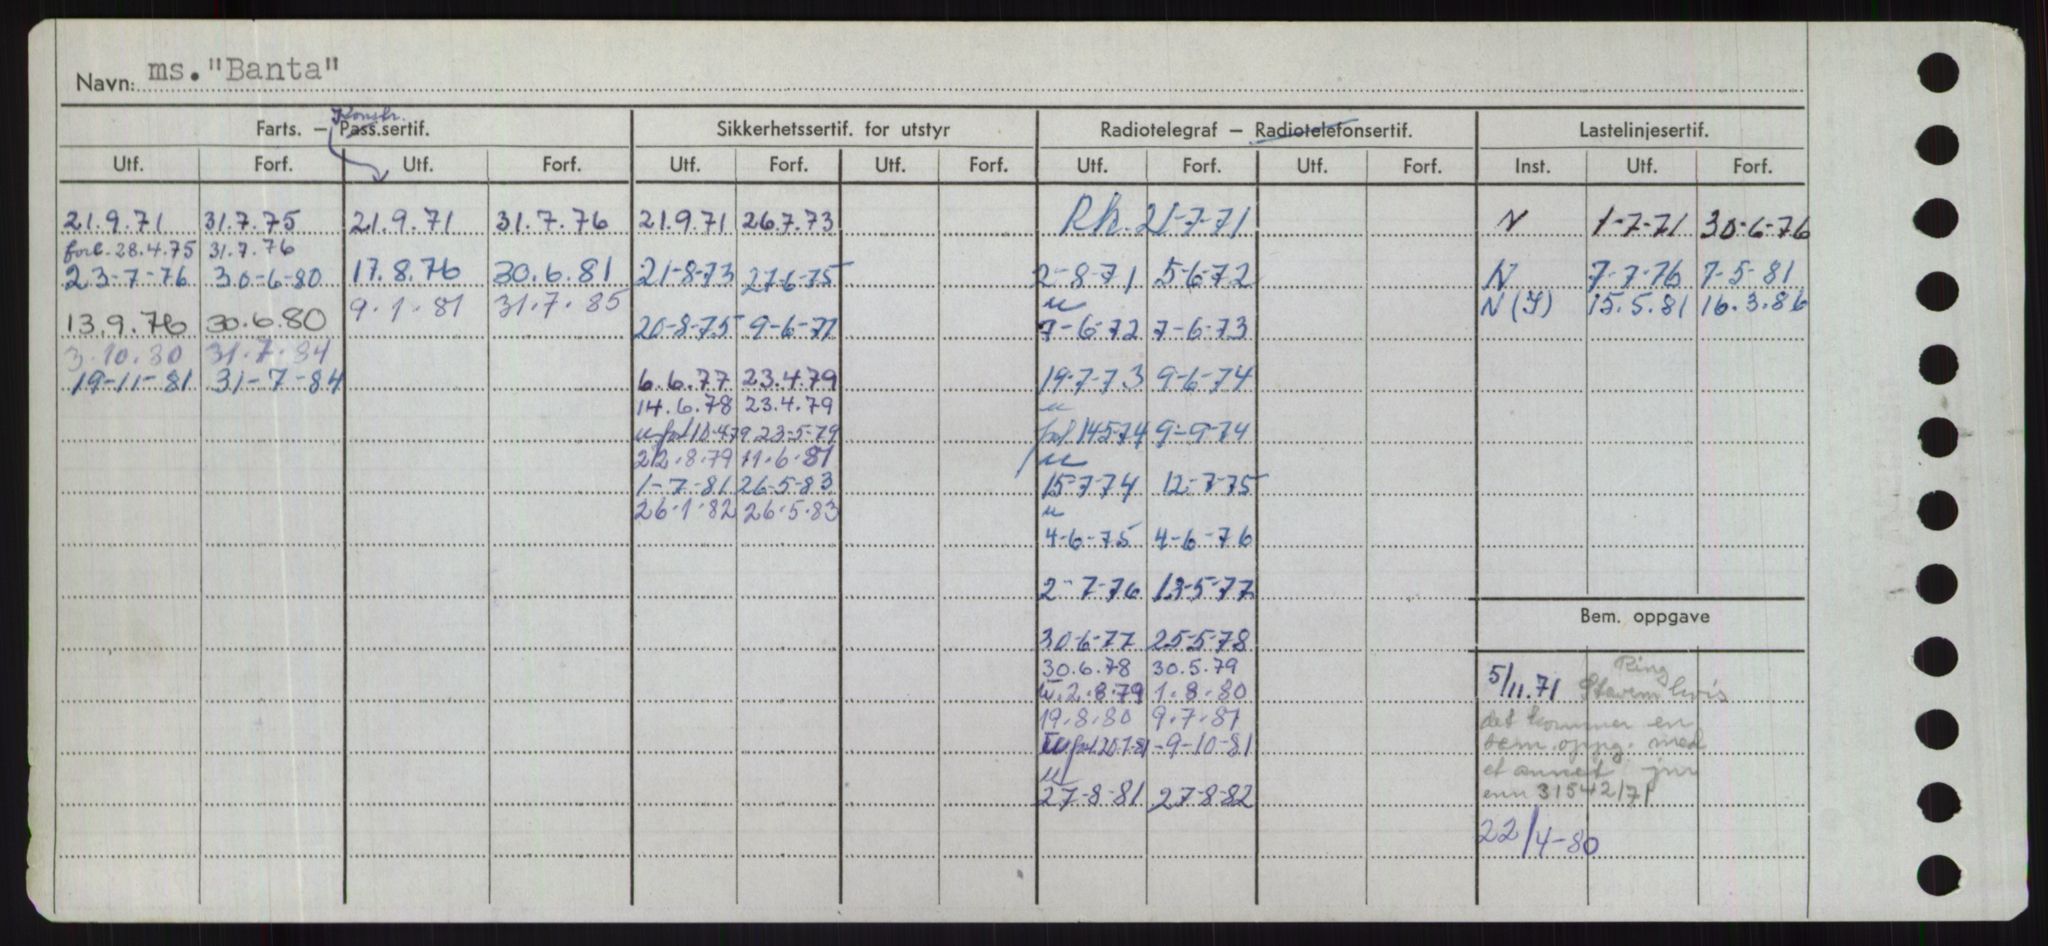 Navn: ms. "Banta"
Konstr.
Farts. – Pass.sertif. Sikkerhetssertif. for utstyr Radiotelegraf – Radiotelefonsertif. Lastelinjesertif.
Utf. Forf. Utf. Forf. Utf. Forf. Utf. Forf. Utf. Forf. Utf. Forf. Inst. Utf. Forf.
21.9.71 31.7.75 21.9.71 31.7.76 21.9.71 26.7.73 Rh. 21-7-71 N 1-7-71 30-6-76
forl. 28.4.75 31.7.76
23-7-76 30-6-80 17.8.76 30.6.81 21-8-73 27-6-75 2-8-71 5-6-72 N 7-7-76 7-5-81
9.1.81 31.7.85 u N (I) 15.5.81 16.3.86
13.9.76 30.6.80 20-8-75 9-6-77 7-6-72 7-6-73
3.10.80 31.7.84
19-11-81 31-7-84 6.6.77 23.4.79 19-7-73 9-6-74
14.6.78 23.4.79 u
u forl 10-4-79 23-5-79 forl. 14574 9-9-74
22.8.79 11.6.81 u
1-7-81 26-5-83 15-7-74 12-7-75
26.1.82 26.5.83 u
4-6-75 4-6-76
2-7-76 13-5-77
Bem. oppgave
30-6-77 25-5-78
30.6.78 30.5.79 Ring
2.8.79 1.8.80 5/11.71 Stavem hvis
19.8.80 9.7.81 det kommer en
forl 20.7.81 -9-10-81 bem. oppg. med
u et annet jnr
27-8-81 27-8-82 enn 31542/71
22/4-80